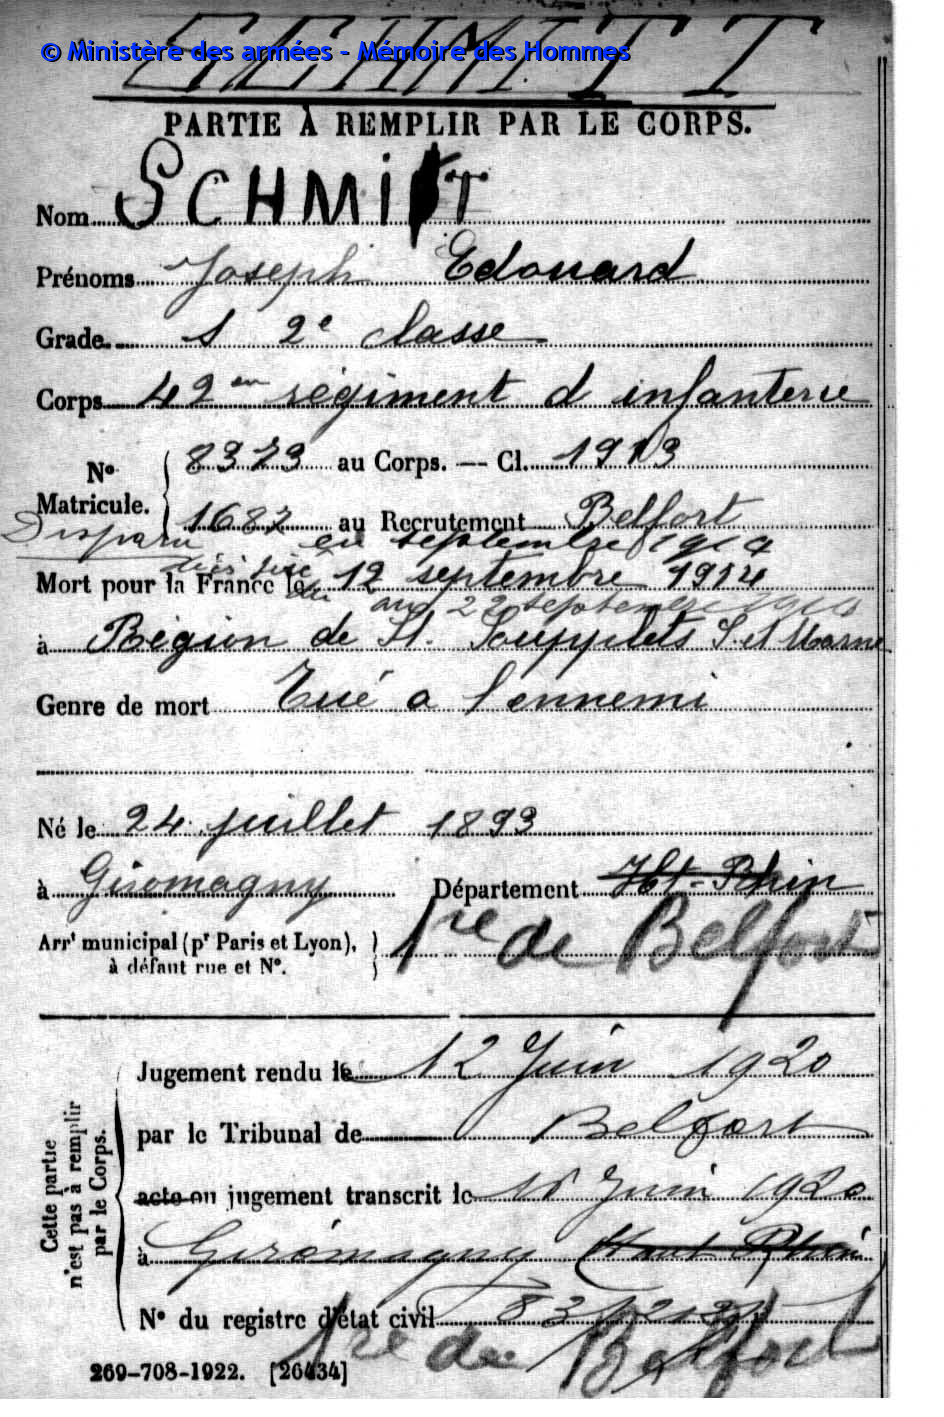 SCHMITT
© Ministère des armées - Mémoire des Hommes
PARTIE À REMPLIR PAR LE CORPS.
Nom SCHMITT
Prénoms Joseph Edouard
Grade S 2e classe
Corps 42em régiment d infanterie
No Matricule. 8323 au Corps. — Cl. 1913
1682 au Recrutement Belfort
Disparu en septembre 1914
Mort pour la France le 12 septembre 1914
au 22 septembre 1914
à Région de St. Soupplets S. et Marne
Genre de mort Tué a l'ennemi
Né le 24 juillet 1893
à Giromagny Département Ht-Rhin
Arrt municipal (pr Paris et Lyon), à défaut rue et No. Tre de Belfort
Cette partie n'est pas à remplir par le Corps.
Jugement rendu le 12 Juin 1920
par le Tribunal de Belfort
acte ou jugement transcrit le Juin 1920
à Giromagny Haut Rhin
No du registre d'état civil
Tre de Belfort
269-708-1922. [26434]